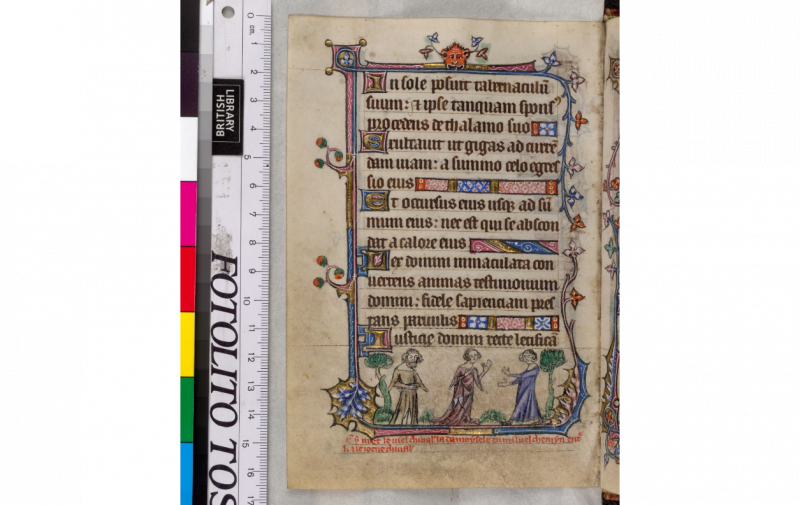 In sole posuit tabernaculū
suum: & ipse tanquam spons⁹
procedens de thalamo suo
Exultauit ut gigas ad currē
dam uiam: a summo celo egres
sio eius
Et occursus eius usq; ad sū
mum eius: nec est qui se abscon
dat a calore eius
Lex domini inmaculata con
uertens animas testimonium
domini: fidele sapienciam pres
tans paruulis
Iusticie domini recte letifica
le uiel la damoysele
le ioene
BRITISH
LIBRARY
0 cm. 1 2 3 4 5 6 7 8 9 10 11 12 13 14 15 16 17
FOTOLITO TOS